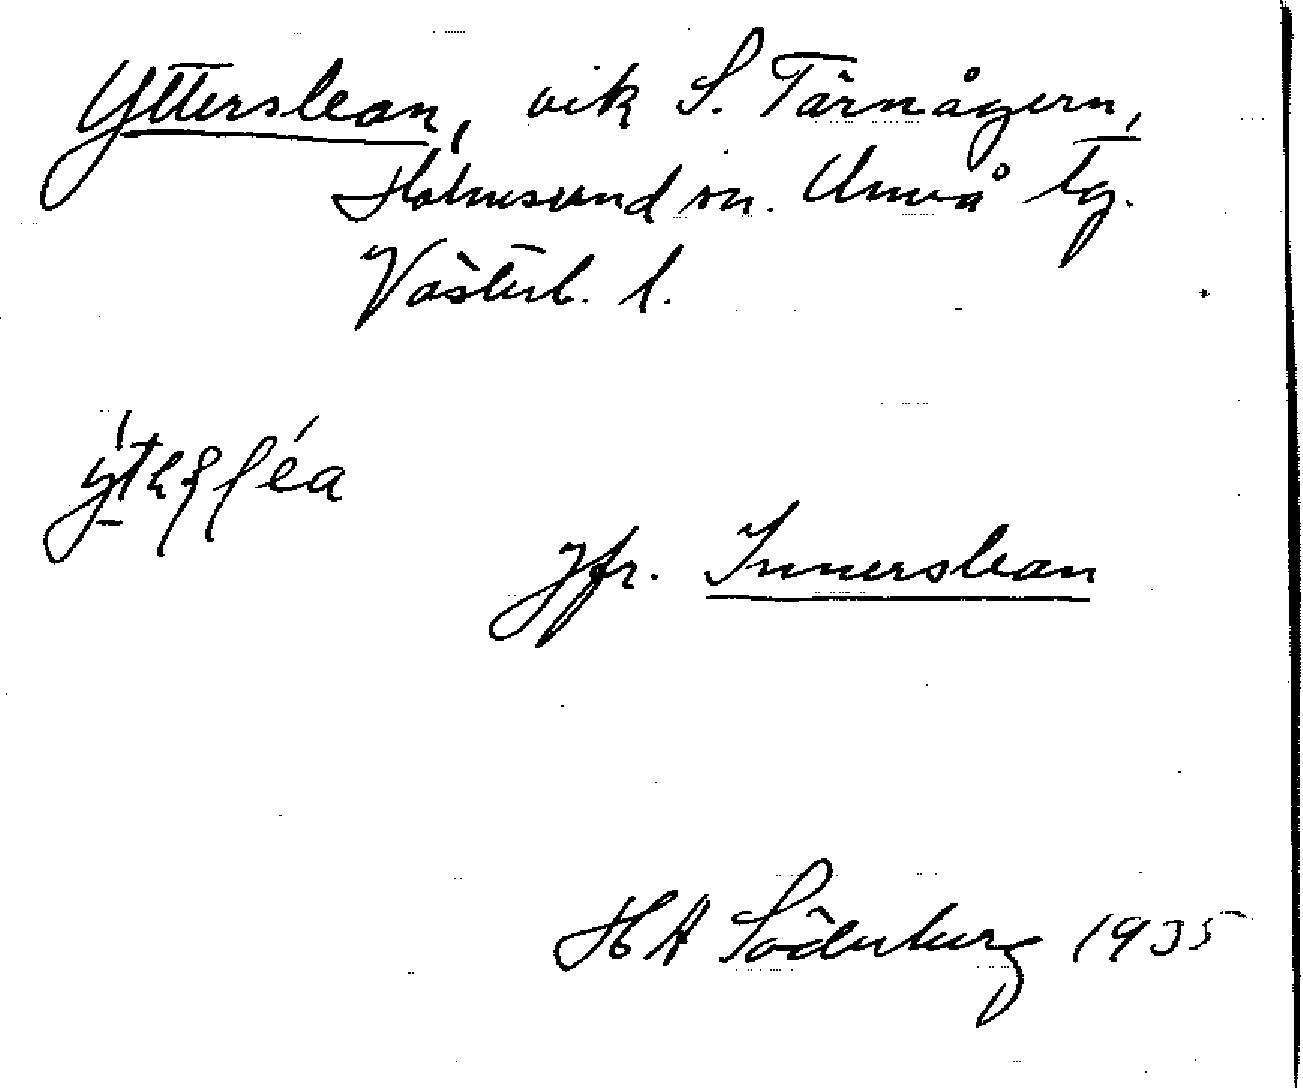 Ytterslean, vik S. Tärnögern,
Holmsund sn. Umeå tg.
Västerb. l.
Jfr. Innerslean
H A Söderberg 1935